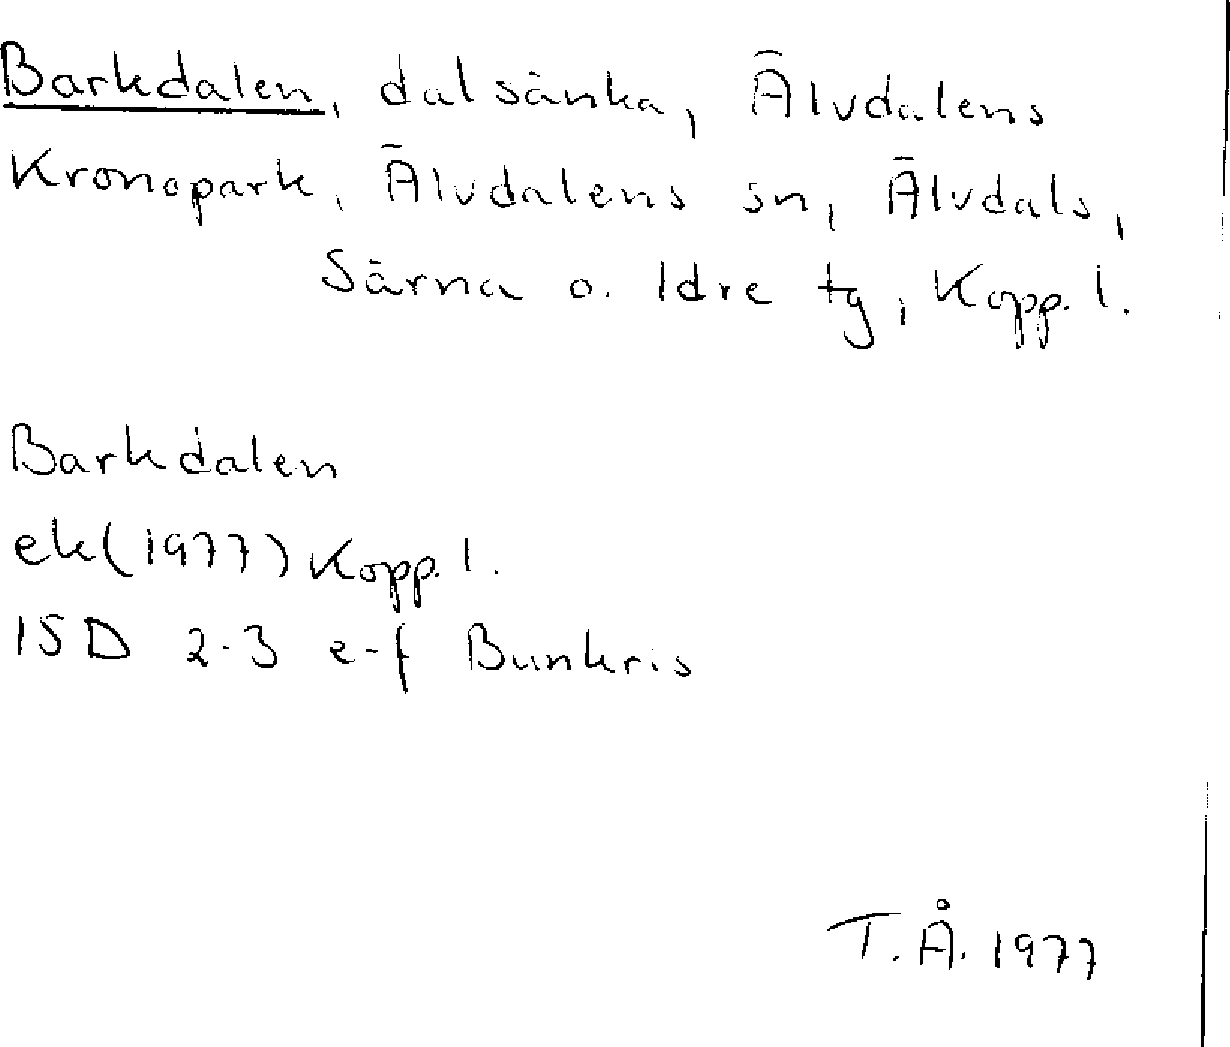 Barkdalen, dalsänka, Älvdalens
Kronopark, Älvdalens sn, Älvdals,
Särna o. Idre tg, Kopp. l.
Barkdalen
ek(1977) Kopp. l.
15D 2-3 e-f Bunkris
T.Å. 1977